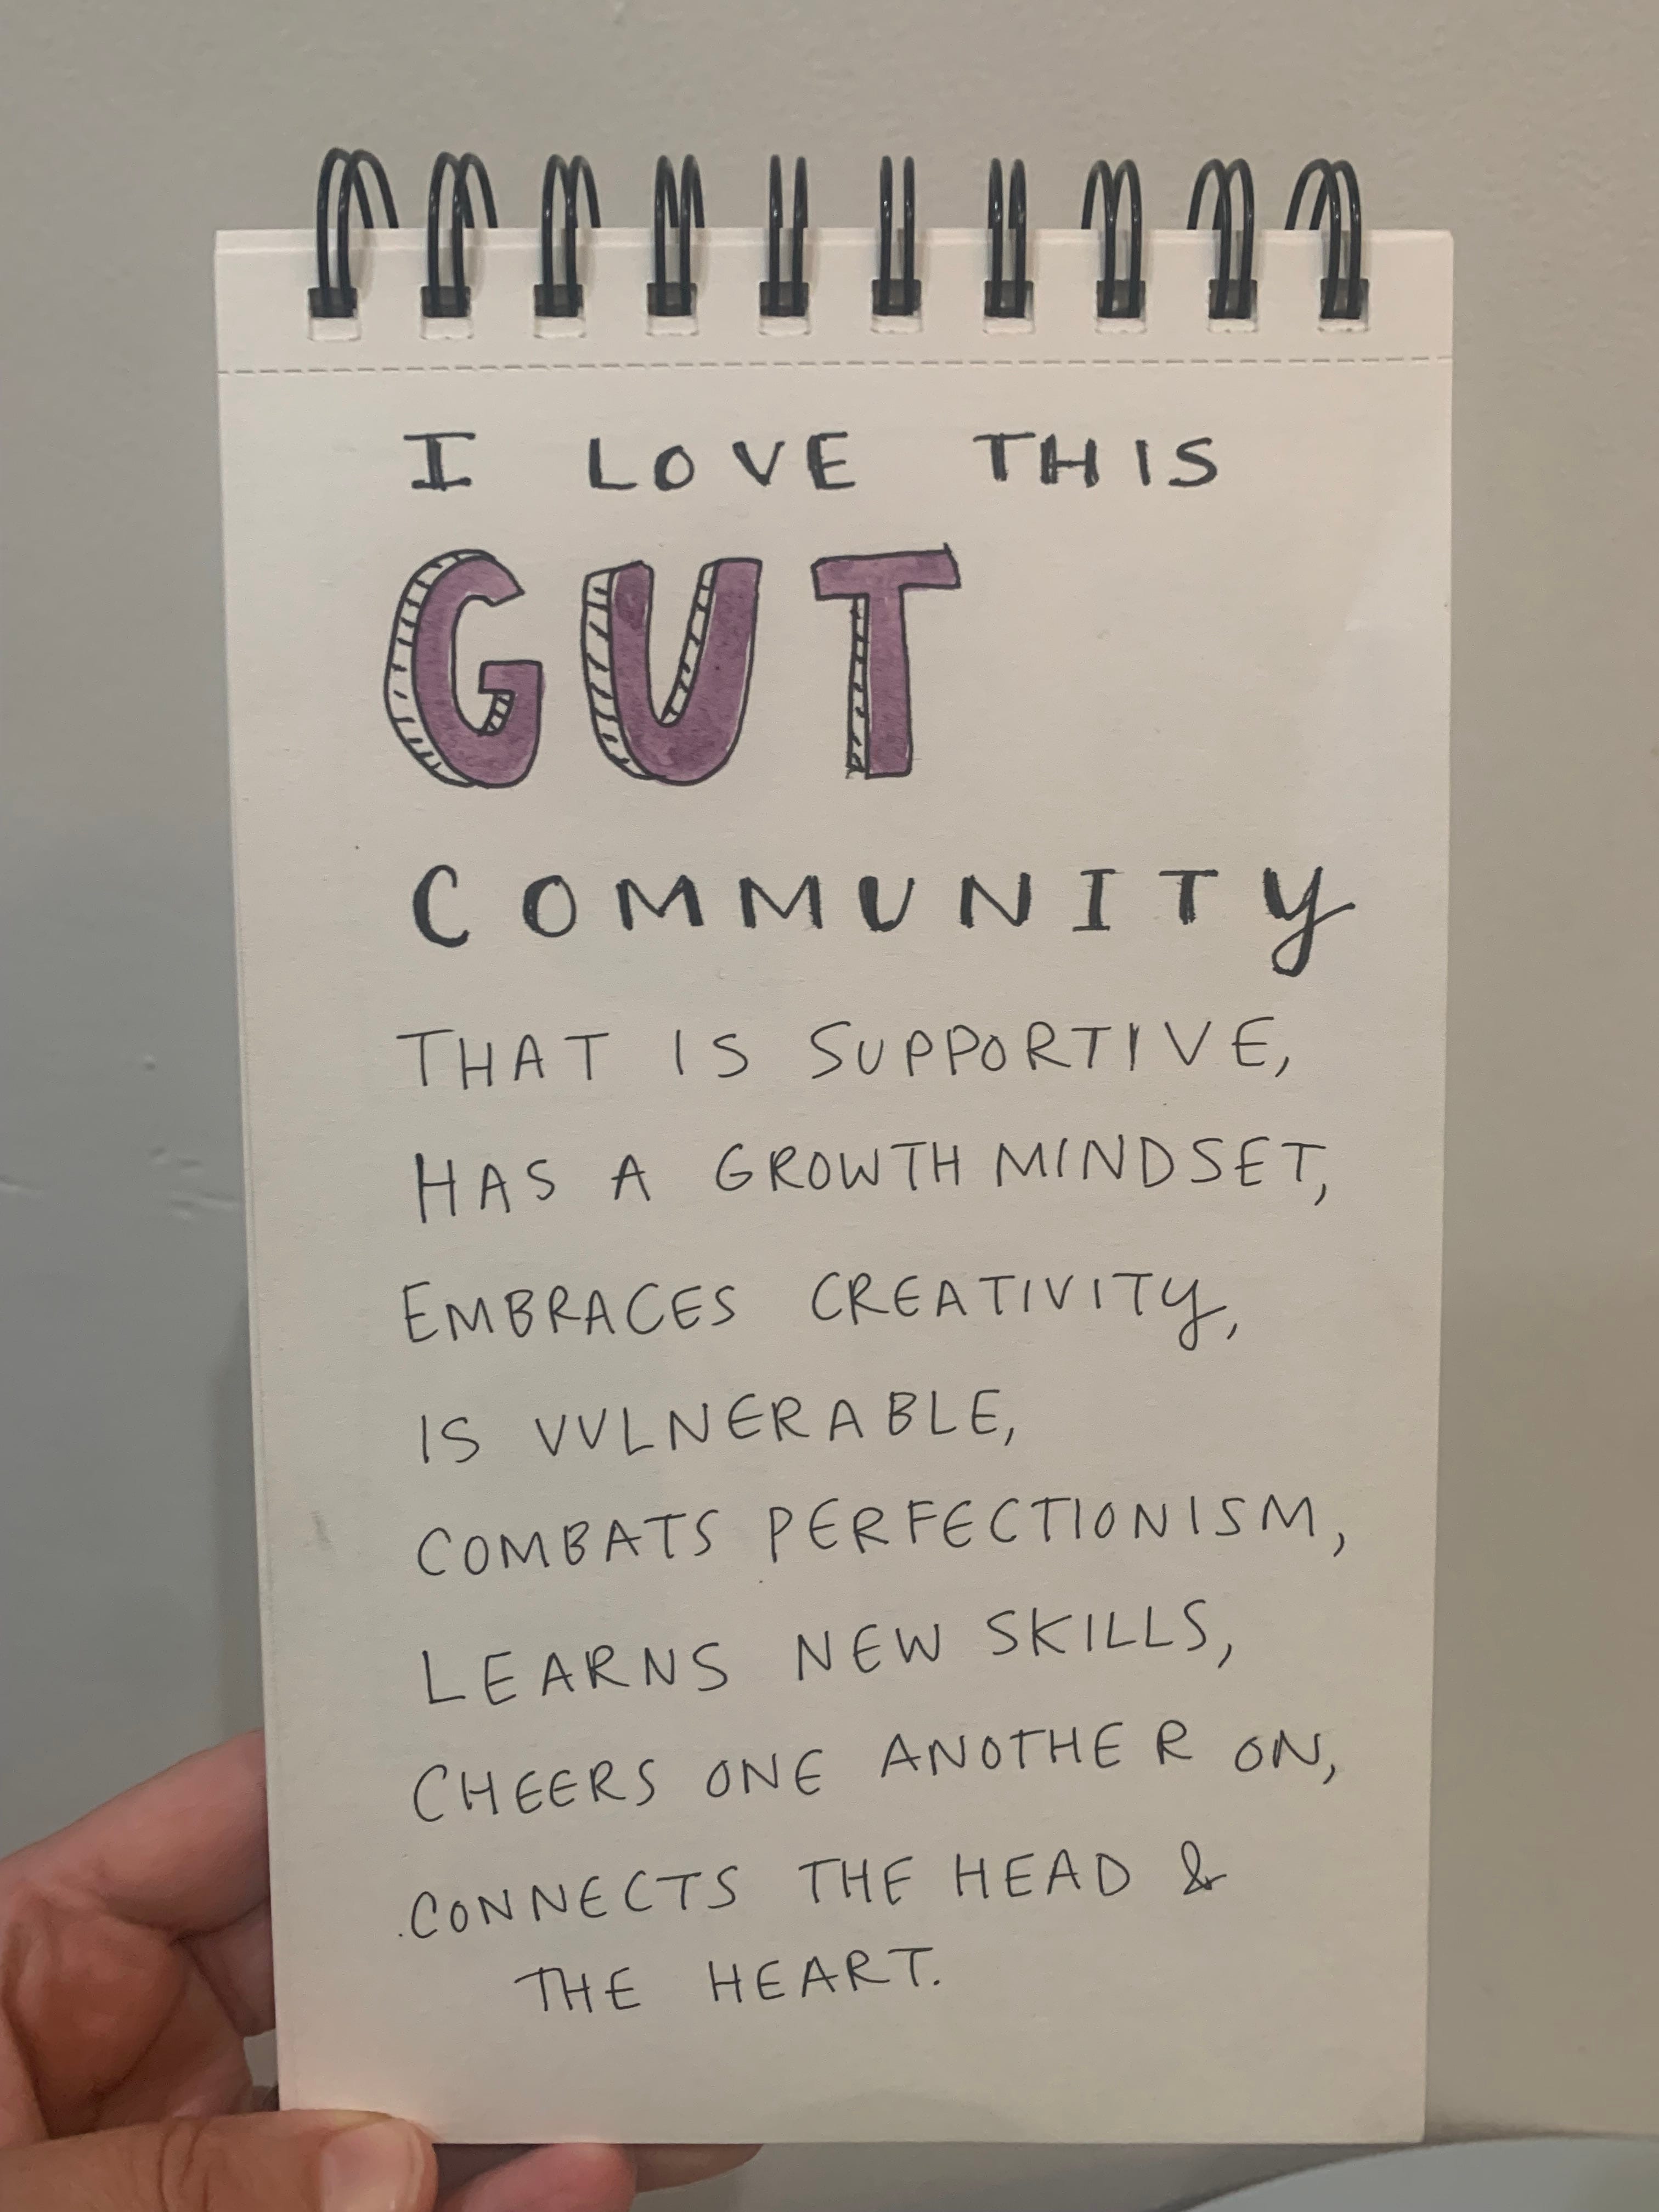 I LOVE THIS
GUT
COMMUNITY
THAT IS SUPPORTIVE,
HAS A GROWTH MINDSET,
EMBRACES CREATIVITY,
IS VULNERABLE,
COMBATS PERFECTIONISM,
LEARNS NEW SKILLS,
CHEERS ONE ANOTHER ON,
CONNECTS THE HEAD &
THE HEART.